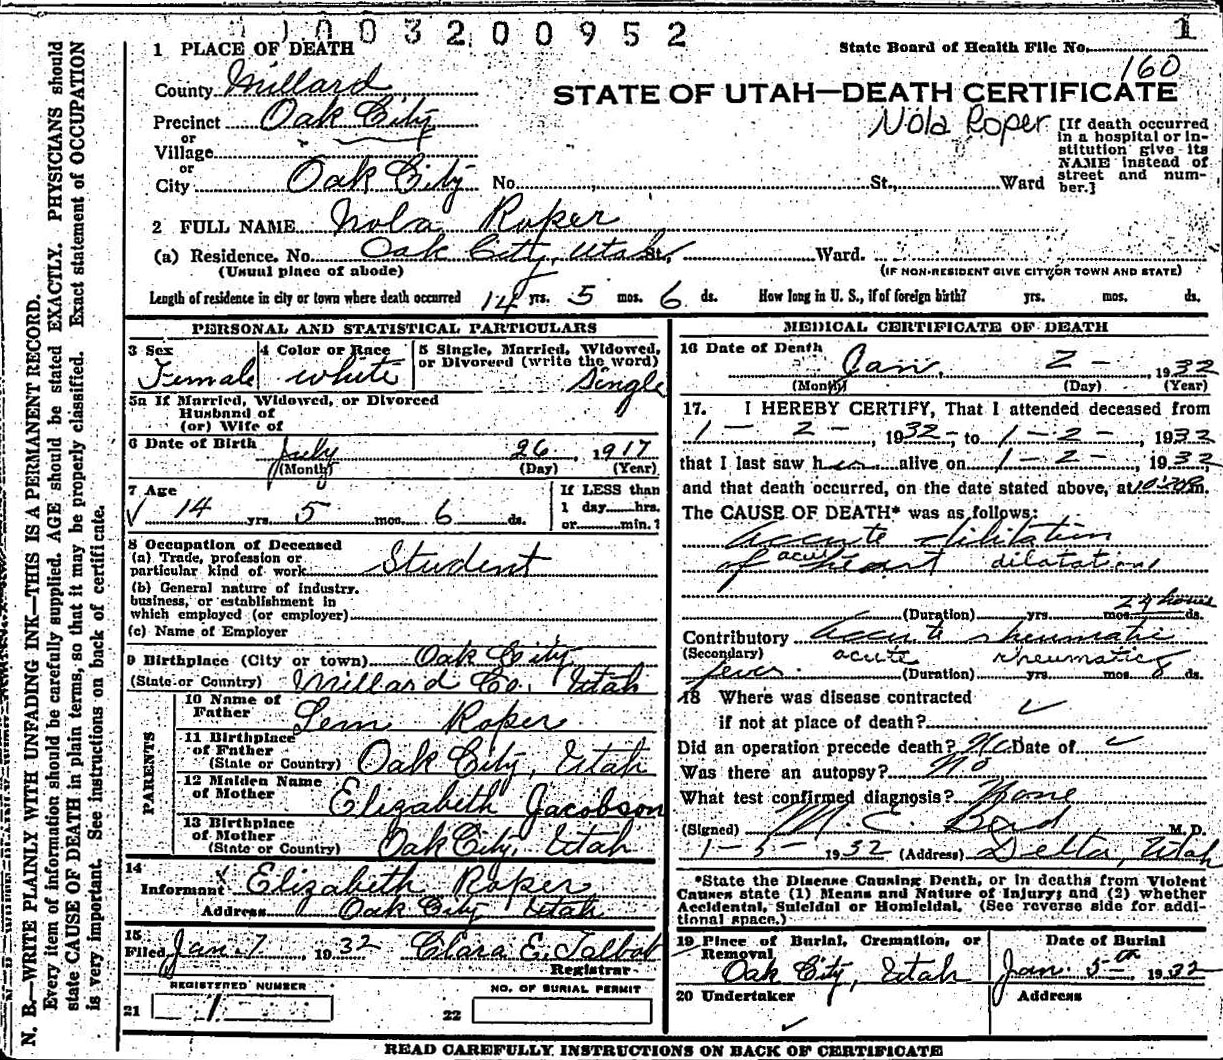 1003200952
1
1 PLACE OF DEATH
State Board of Health File No.
160
County Millard
STATE OF UTAH—DEATH CERTIFICATE
Precinct Oak City
Nola Roper
[If death occurred in a hospital or institution give its NAME instead of street and number.]
or
Village
or
City Oak City No. St., Ward
2 FULL NAME Nola Roper
(a) Residence. No. Oak City, Utah St., Ward.
(Usual place of abode)
(IF NON-RESIDENT GIVE CITY OR TOWN AND STATE)
Length of residence in city or town where death occurred 14 yrs. 5 mos. 6 ds. How long in U. S., if of foreign birth? yrs. mos. ds.
PERSONAL AND STATISTICAL PARTICULARS
3 Sex
Female
4 Color or Race
white
5 Single, Married, Widowed, or Divorced (write the word)
Single
5a If Married, Widowed, or Divorced
Husband of
(or) Wife of
6 Date of Birth July 26, 1917
(Month) (Day) (Year)
7 Age
14 yrs. 5 mos. 6 ds.
If LESS than
1 day hrs.
or min.?
8 Occupation of Deceased
(a) Trade, profession or
particular kind of work Student
(b) General nature of industry.
business, or establishment in
which employed (or employer)
(c) Name of Employer
9 Birthplace (City or town) Oak City
(State or Country) Millard Co., Utah
PARENTS
10 Name of
Father Lem Roper
11 Birthplace
of Father
(State or Country) Oak City, Utah
12 Maiden Name
of Mother Elizabeth Jacobson
13 Birthplace
of Mother
(State or Country) Oak City, Utah
14
Informant Elizabeth Roper
Address Oak City Utah
15
Filed Jan 7 1932 Clara E. Talbot
Registrar
REGISTERED NUMBER
21 1
NO. OF BURIAL PERMIT
22
MEDICAL CERTIFICATE OF DEATH
16 Date of Death
Jan. 2 - 1932
(Month) (Day) (Year)
17. I HEREBY CERTIFY, That I attended deceased from
1 - 2 -, 1932, to 1 - 2 -, 1932
that I last saw her alive on 1 - 2 -, 1932
and that death occurred, on the date stated above, at m.
The CAUSE OF DEATH* was as follows:
Accute dilitation
of acute heart dilatation
(Duration) yrs. mos. 24 hours ds.
Contributory Accute rheumatic
(Secondary) acute rheumatic
fever (Duration) yrs. mos. 8 ds.
18 Where was disease contracted
if not at place of death? ✓
Did an operation precede death? No Date of ✓
Was there an autopsy? No
What test confirmed diagnosis? None
(Signed) M. C. M. D.
1 - 5 - 1932 (Address) Delta, Utah
*State the Disease Causing Death, or in deaths from Violent
Causes state (1) Means and Nature of Injury; and (2) whether
Accidental, Suicidal or Homicidal. (See reverse side for addi-
tional space.)
19 Place of Burial, Cremation, or
Removal
Oak City, Utah
Date of Burial
Jan 5th 1932
20 Undertaker
✓
Address
READ CAREFULLY INSTRUCTIONS ON BACK OF CERTIFICATE
N. B.—WRITE PLAINLY WITH UNFADING INK—THIS IS A PERMANENT RECORD.
Every item of information should be carefully supplied. AGE should be stated EXACTLY. PHYSICIANS should
state CAUSE OF DEATH in plain terms, so that it may be properly classified. Exact statement of OCCUPATION
is very important. See instructions on back of certificate.